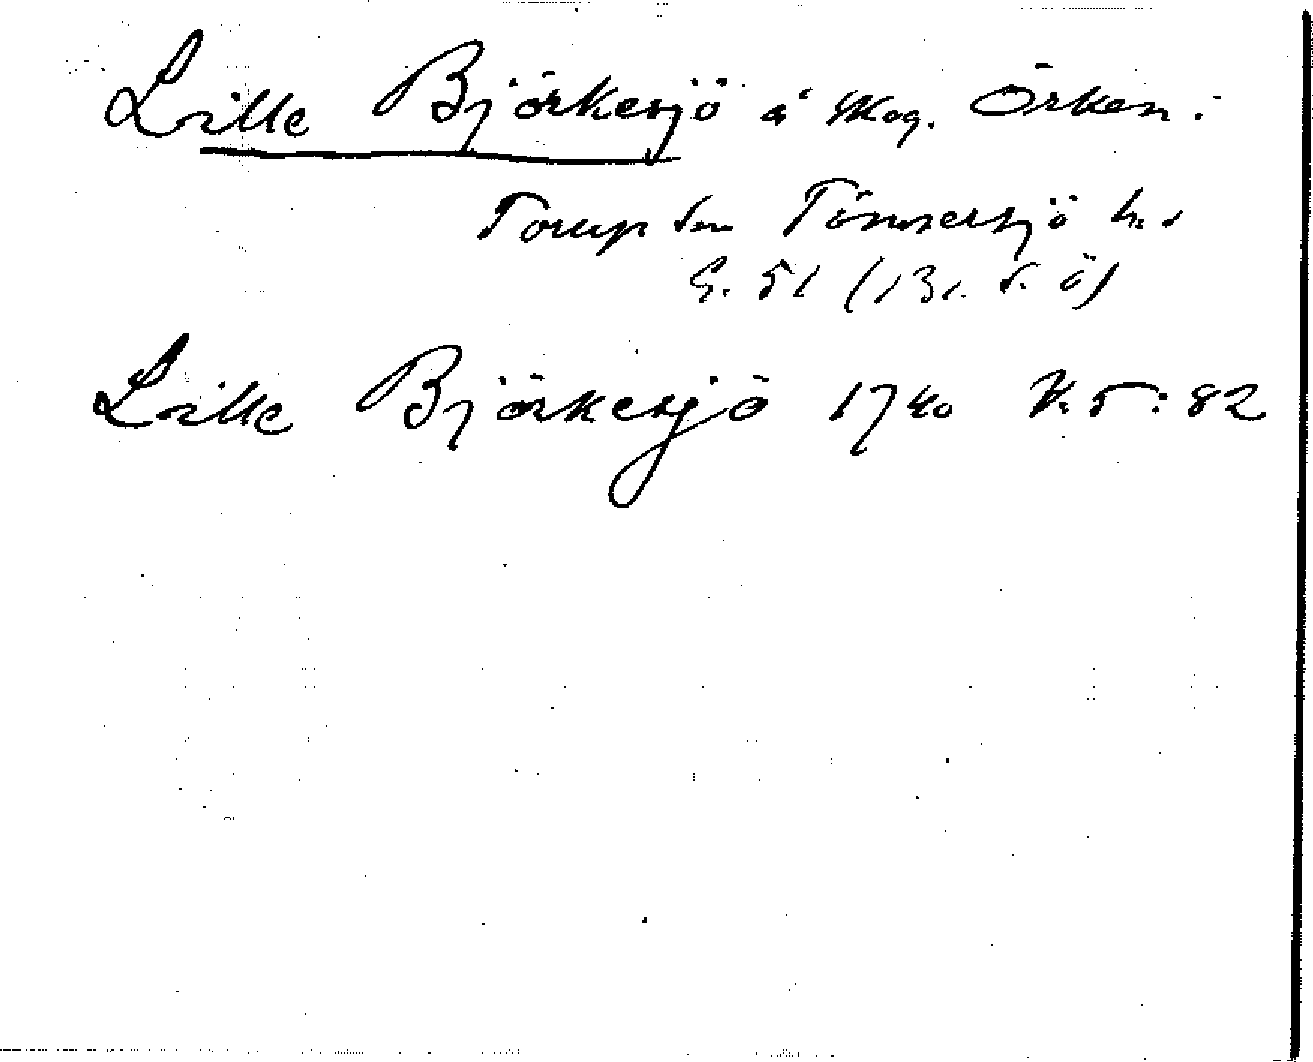 Lille Björkesjö å skog. Örken.
Torup sn Tönnersjö hd
G. 51 (131. s. ö)
Lille Björkesjö 1740 K. 5:82